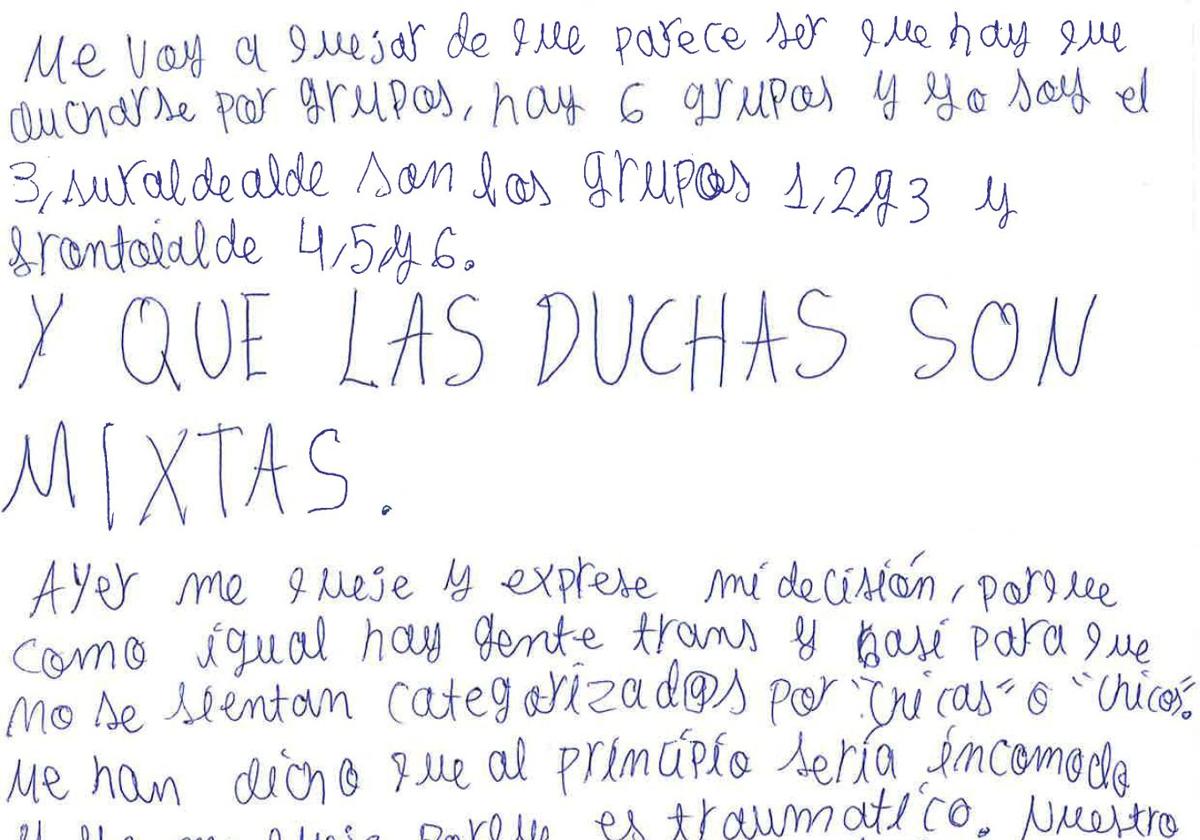 Me voy a quejar de que parece ser que hay que
ducharse por grupos, hay 6 grupos y yo soy el
3, suraldealde son los grupos 1,2y3 y
frontoialde 4,5y6.
Y QUE LAS DUCHAS SON
MIXTAS.
Ayer me queje y exprese mi decisión, porque
como igual hay gente trans y asi para que
no se sientan categorizad@s por "chicas" o "chicos".
Me han dicho que al principio sería incomodo
es traumatico. Nuestro